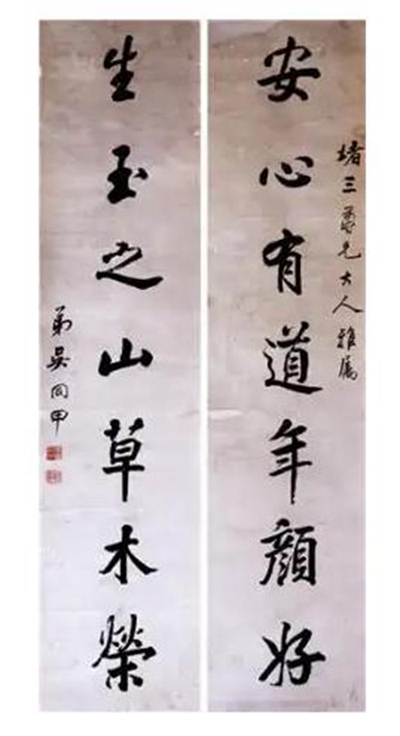 堵三兄大人雅属
安心有道年顏好
生玉之山草木榮
弟吴同甲